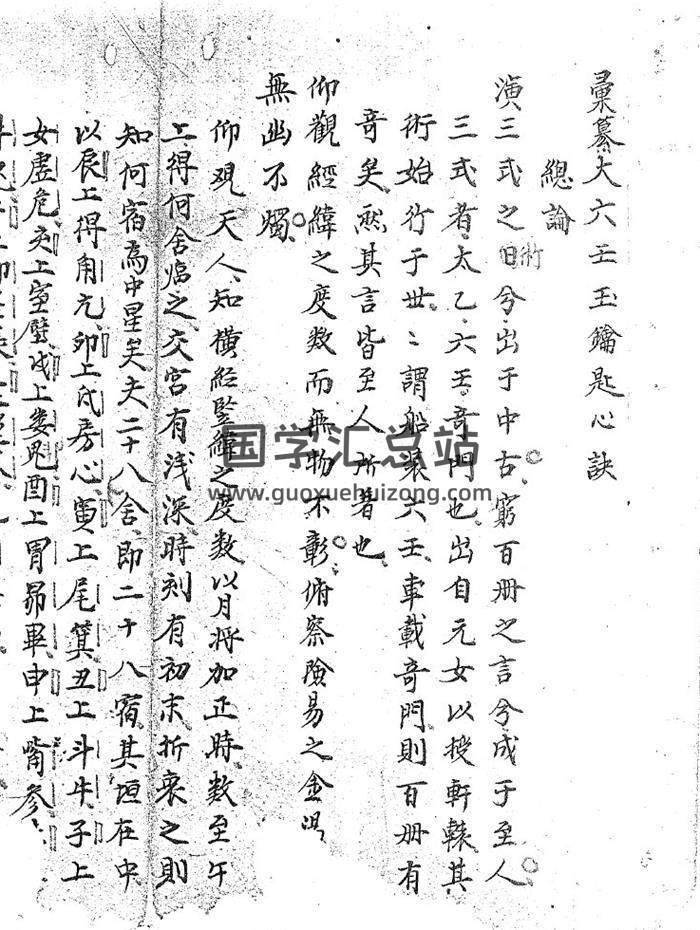 彙纂大六壬玉鑰匙心訣
總論
演三式之旧術兮出于中古窮百册之言兮成于至人
三式者太乙六壬奇門也出自元女以授軒轅其
術始行于世〻謂船裝六壬車載奇門則百册有
奇矣然其言皆至人所著也
仰觀經緯之度数而無物不彰俯察險易之
無幽不燭
仰观天人知橫經竪緯之度数以月将加正時数至午
上得何舍临之交宫有浅深時刻有初末折衷之則
知何宿為中星矣夫二十八舍即二十八宿其垣在中
以辰上得角亢卯上氐房心寅上尾箕丑上斗牛子上
女虚危亥上室壁戌上娄奎酉上胃昴畢申上觜参
国学汇总站
www.guoxuehuizong.com